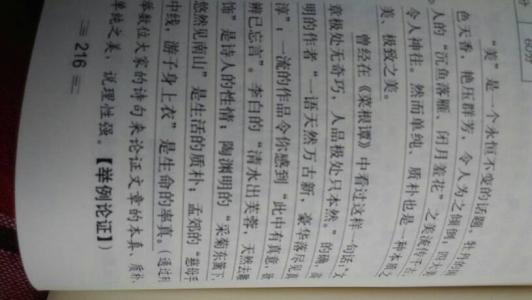 “美”是一个永恒不变的话题。牡丹的国
色天香，艳压群芳，令人为之倾倒；四大美
人的“沉鱼落雁、闭月羞花”之美流传千古，
令人神往。然而单纯、质朴也是一种本真之
美、极致之美。
曾经在《菜根谭》中看过这样一句话：“文
章极处无奇巧，人品极处只本然。”的确，高
明的作者“一语天然万古新，豪华落尽见真
淳”，一流的作品令你感到“此中有真意，欲
辨已忘言”。李白的“清水出芙蓉，天然去雕
饰”是诗人的性情；陶渊明的“采菊东篱下，
悠然见南山”是生活的质朴；孟郊的“慈母手
中线，游子身上衣”是生命的率真。（通过列
举数位大家的诗句来论证文章的本真、质朴、
单纯之美，说理性强。【举例论证】）
216